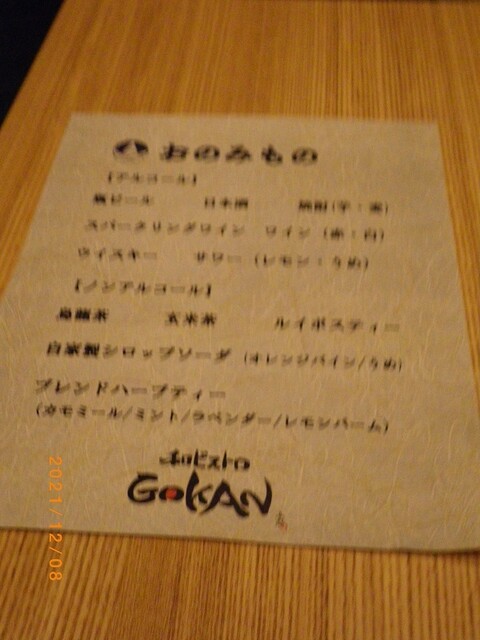 おのみもの
【アルコール】
瓶ビール 日本酒 焼酎(芋・麦)
スパークリングワイン ワイン (赤・白)
ウイスキー サワー (レモン・うめ)
【ノンアルコール】
烏龍茶 玄米茶 ルイボスティー
自家製シロップソーダ (オレンジパイン/うめ)
ブレンドハーブティー
(カモミール/ミント/ラベンダー/レモンバーム)
和ビストロ
GOKAN
2021/12/08